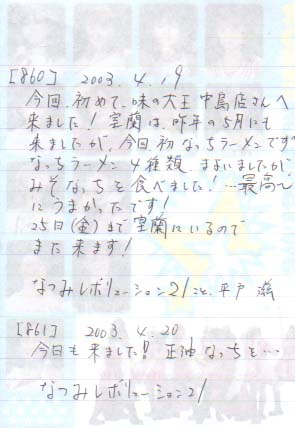 [860] 2003. 4. 19
今回、初めて、味の大王 中島店さんへ
来ました！室蘭は、昨年の5月にも
来ましたが、今回初なっちラーメンです
なっちラーメン4種類、まよいましたが
みそなっちを食べました！…最高〜
にうまかったです！
25日(金)まで室蘭にいるので
また来ます！
なつみレボリューション21こと、平戸 滋
[861] 2003. 4. 20
今日も来ました!! 正油なっちを…
なつみレボリューション21